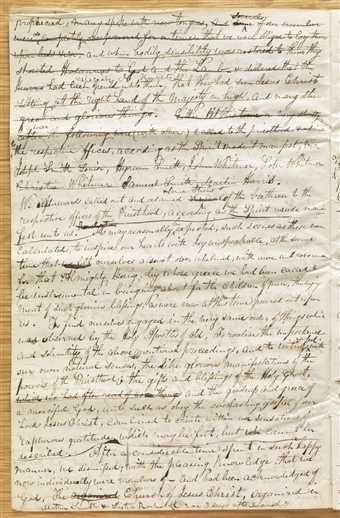 prophesied, many spake with new tongues, and some several of our number
were completely overpowered for a time, that we were obliged to lay them
upon beds &c. and when bodily sensibility was restored to them they
shouted Hosannas to God and the Lamb & declared that the
heavens had been opened unto them, that they had seen Jesus Christ
sitting at the right hand of the Majesty on high, and many other
great and glorious things.
the following were called to the priesthood
the respective offices, according as the Spirit made manifest, viz
Joseph Smith Senior, Hyrum Smith, John Whitmer, Peter Whitmer
Christian Whitmer Samuel Smith Martin Harris.
We afterwards called out and ordained of the brethren to the
respective offices of the Priesthood, according as the Spirit made mani-
fest unto us. As may reasonably be expected, such scenes as these were
calculated to inspire our hearts with joy unspeakable, at the same
time that we felt ourselves almost overwhelmed, with awe and reverence
for that Almighty Being, by whose grace we had been called to
be instrumental in bringing about for the children of men, the enjoy-
ment of such glorious blessings, as were now at this time poured out upon
us. To find ourselves engaged in the very same order of things which
was observed by the Holy Apostles of old, To realize the importance
and solemnity of the above mentioned proceedings, and to witness and feel with
our own natural senses, the like glorious manifestations of the
powers of the Priesthood; the gifts and blessings of the Holy Ghost,
and the goodness and grace of
a merciful God, unto such as obey the everlasting gospel of our
Lord Jesus Christ, combined to create within us sensations of
rapturous gratitude, which may be felt, but cannot be
described. After a considerable time spent in such happy
manner, we dismissed, with the pleasing knowledge that we
now individually were members of and had been acknowledged of
God, The Church of Jesus Christ, organized in